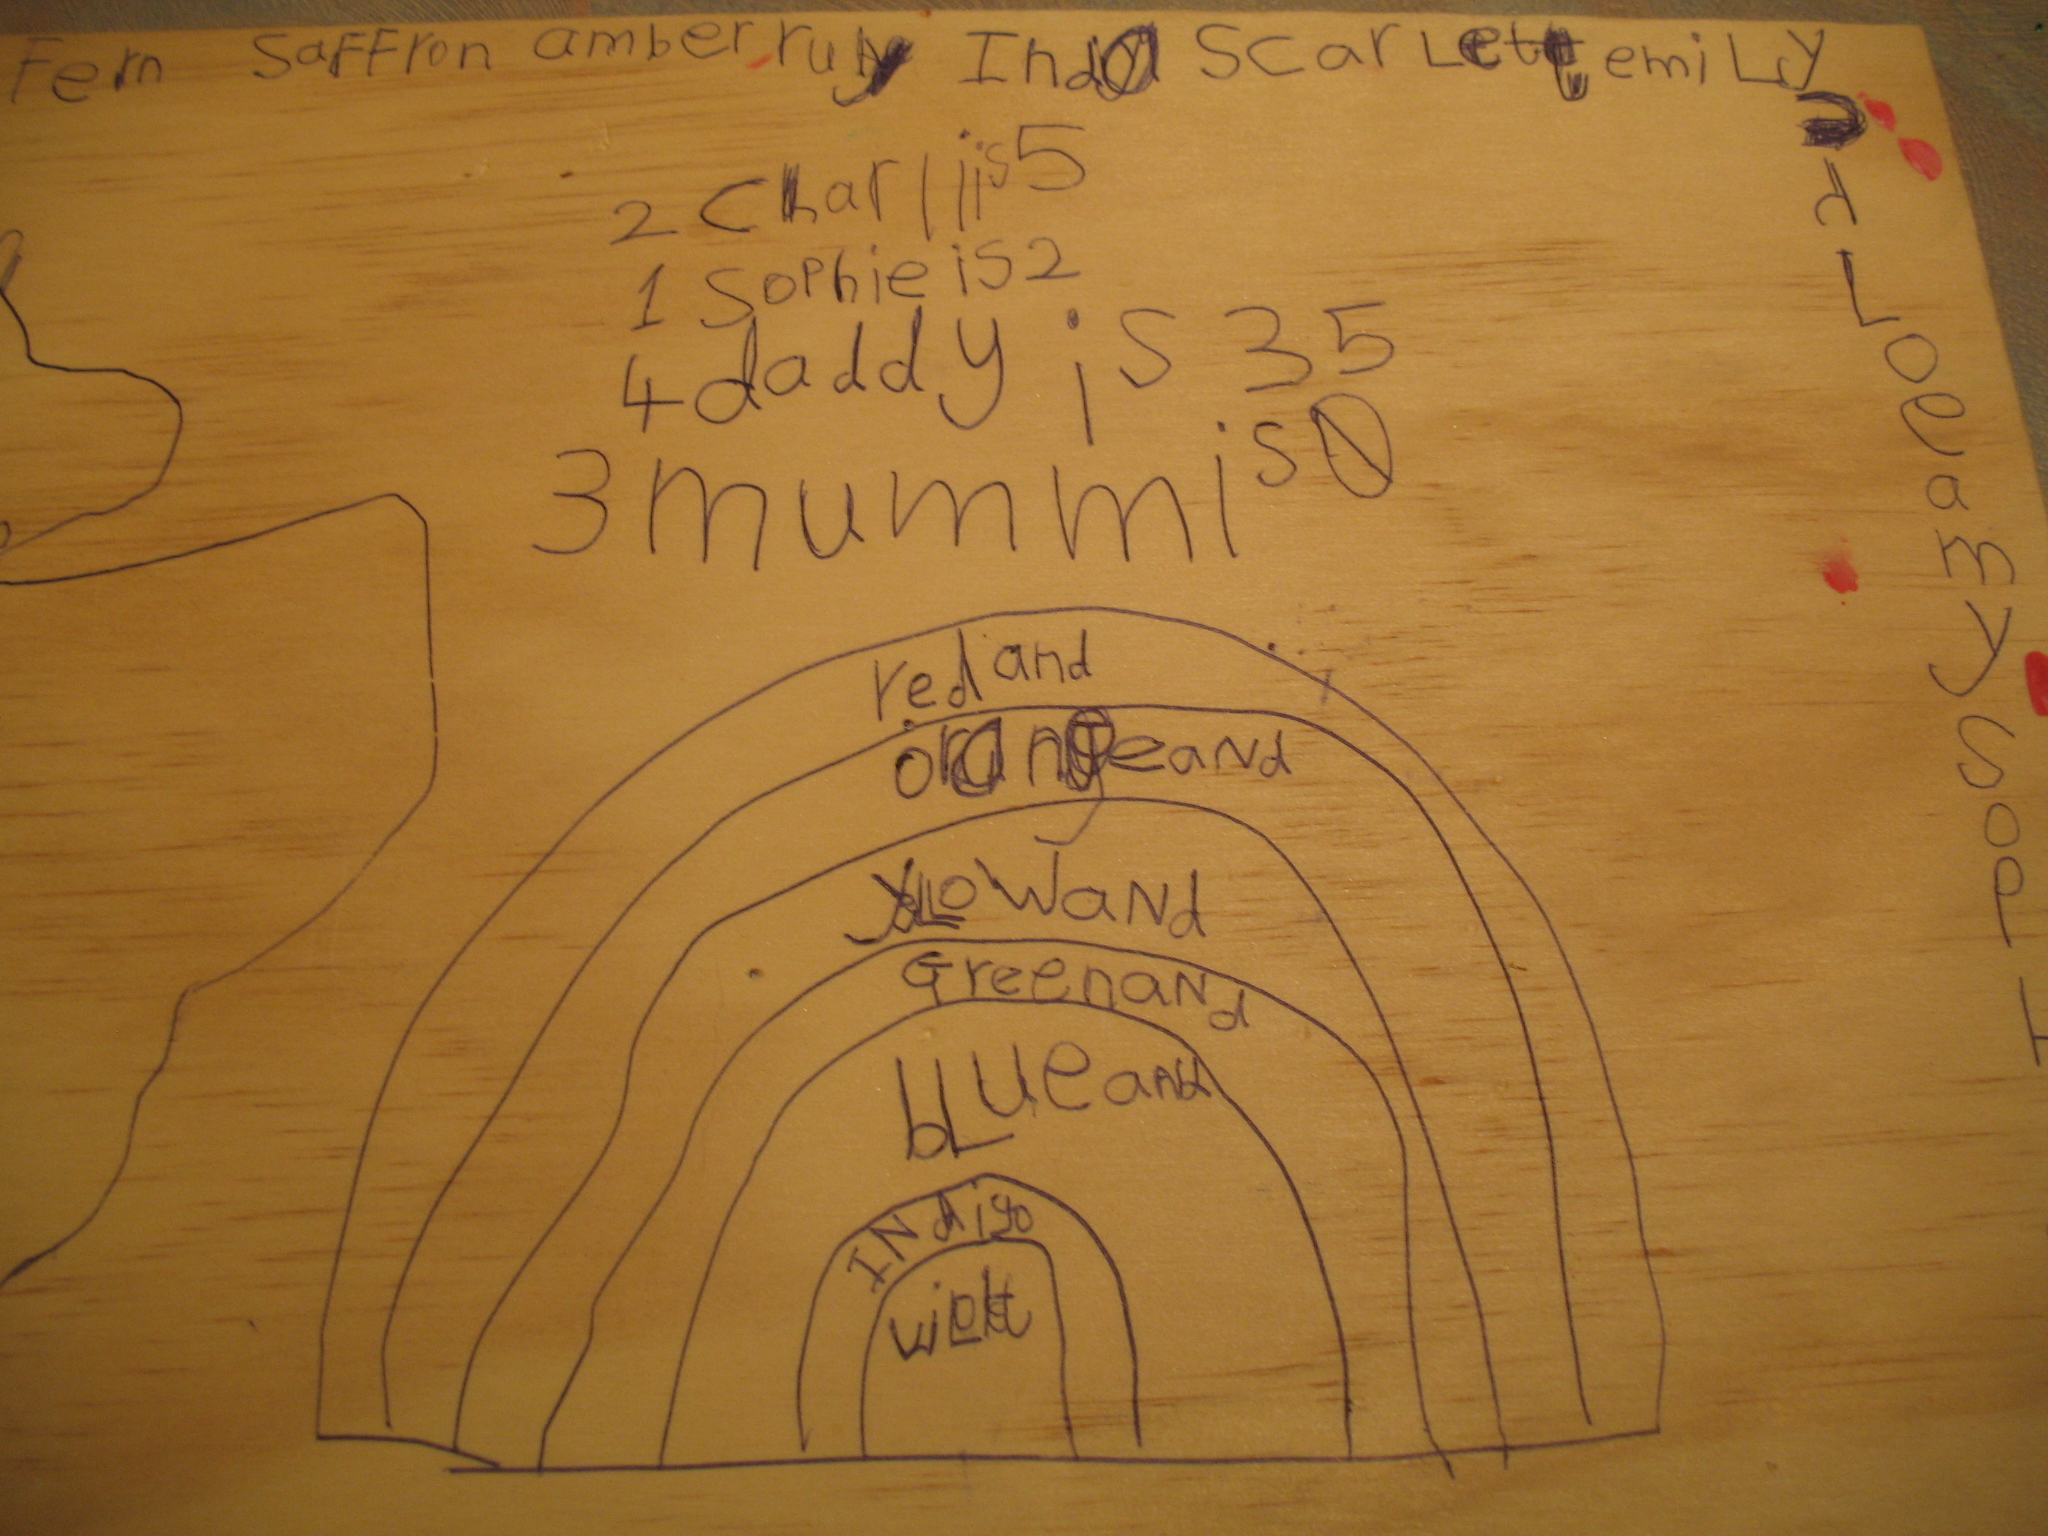 Fern Saffron amber ruby India Scarlett emiLy
2 Charlli is 5
1 Sophie is 2
4 daddy is 35
3 mumm is 0
red and
orange and
yeLLow aNd
Greenand
bLUe and
INdigo
violet
d Loe amy SoPH